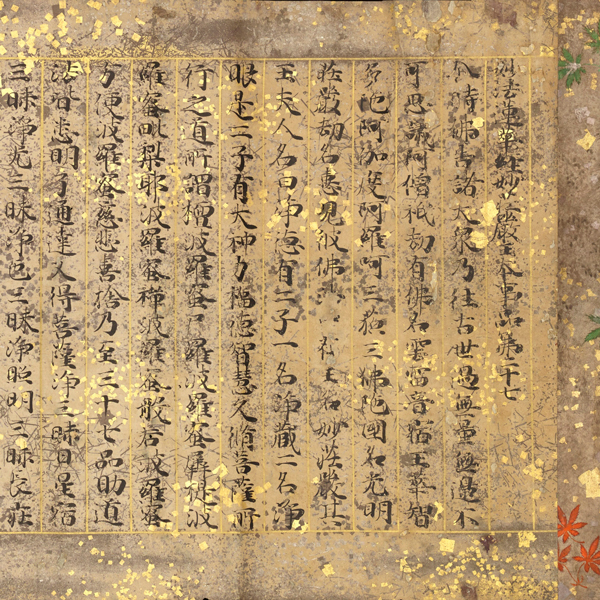 妙法蓮華経妙莊嚴王本事品第二十七
尒時佛告諸大衆乃往古世過無量無邊不
可思議阿僧祇劫有佛名雲雷音宿王華智
多陀阿伽度阿羅訶三藐三佛陀國名光明
莊嚴劫名憙見彼佛有王名妙莊嚴其
王夫人名曰淨德有二子一名淨藏二名淨
眼是二子有大神力福德智慧久脩菩薩所
行之道所謂檀波羅蜜尸羅波羅蜜羼提波
羅蜜毗梨耶波羅蜜禪波羅蜜般若波羅蜜
方便波羅蜜慈悲喜捨乃至三十七品助道
法皆悉明了通達又得菩薩淨三昧日星宿
三昧淨光三昧淨色三昧淨照明三昧長莊